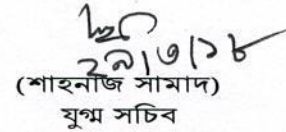 ২৯/৩/১৮
(শাহনাজ সামাদ)
যুগ্ম সচিব